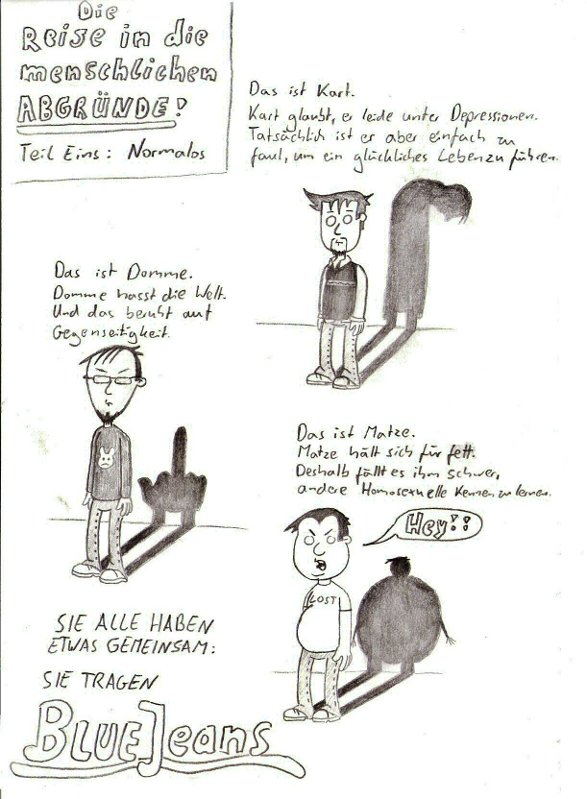 Die
Reise in die
menschlichen
ABGRÜNDE!
Teil Eins: Normalos
Das ist Kart.
Kart glaubt, er leide unter Depressionen.
Tatsächlich ist er aber einfach zu
faul, um ein glückliches Leben zu führen.
Das ist Domme.
Domme hasst die Welt.
Und das beruht auf
Gegenseitigkeit.
Das ist Matze.
Matze hält sich für fett.
Deshalb fällt es ihm schwer,
andere Homosexuelle kennen zu lernen.
Hey!!
LOST
SIE ALLE HABEN
ETWAS GEMEINSAM:
SIE TRAGEN
BLUEJeans